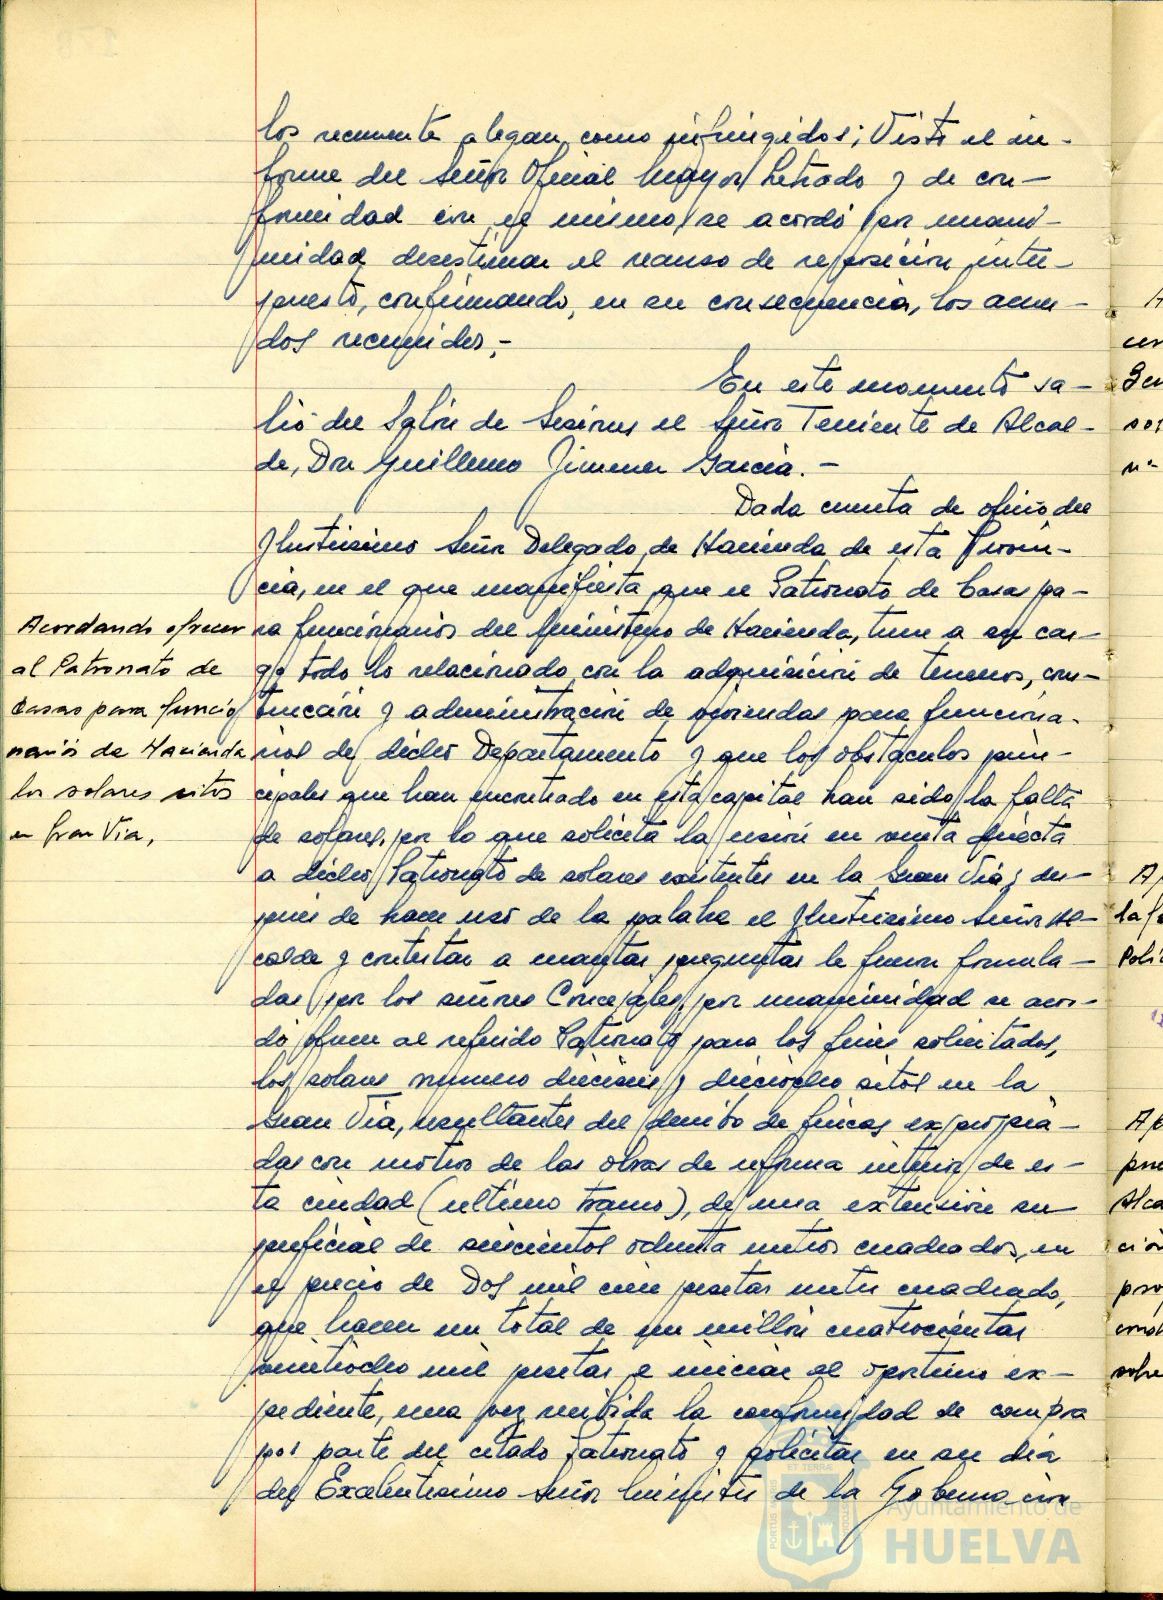 los recurrente alegan como infringidos; Visto el in-
forme del Señor Oficial Mayor Letrado y de con-
formidad con el mismo, se acordó por unani-
midad desestimar el recurso de reposición inter-
puesto, confirmando, en su consecuencia, los acuer-
dos recurridos.-
En este momento sa-
lió del Salón de Sesiones el Señor Teniente de Alcal-
de, Don Guillermo Jimenez García.-
Dada cuenta de oficio del
Ilustrisimo Señor Delegado de Hacienda de esta Provin-
cia, en el que manifiesta que el Patronato de Casas pa-
ra funcionarios del Ministerio de Hacienda, tiene a su car-
go todo lo relacionado con la adquisición de terrenos, cons-
trucción y administración de viviendas para funciona-
rios de dicho Departamento y que los obstaculos prin-
cipales que han encontrado en esta capital han sido la falta
de solares, por lo que solicita la cesión en venta directa
a dicho Patronato de solares existentes en la Gran Via; des-
pues de hacer uso de la palabra el Ilustrisimo Señor Al-
calde y contestar a cuantas preguntas le fueron formula-
das por los señores Concejales, por unanimidad se acor-
dó ofrecer al referido Patronato para los fines solicitados,
los solares numero dieciseis y dieciocho sitos en la
Gran Via, resultantes del derribo de fincas expropia-
das con motivo de las obras de reforma interior de es-
ta ciudad (ultimo tramo), de una extensión su-
perficial de seiscientos ochenta metros cuadrados, en
el precio de Dos mil cien pesetas metro cuadrado,
que hacen un total de un millón cuatrocientas
veintiocho mil pesetas e iniciar el oportuno ex-
pediente, una vez recibida la conformidad de compra
por parte del citado Patronato y solicitar en su dia
del Excelentisimo Señor Ministro de la Gobernacion
Acordando ofrecer
al Patronato de
Casas para funcio
narios de Hacienda
los solares sitos
en Gran Via,
Ayuntamiento de
HUELVA